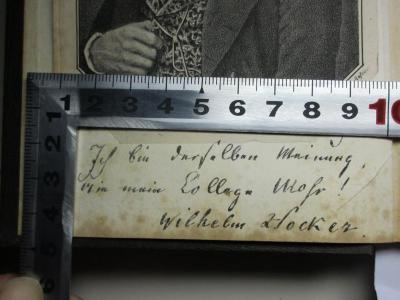 1 2 3 4 5 6 7 8 9 10
Ich bin derselben Meinung,
wie mein College Mohr!
Wilhelm Hocker.